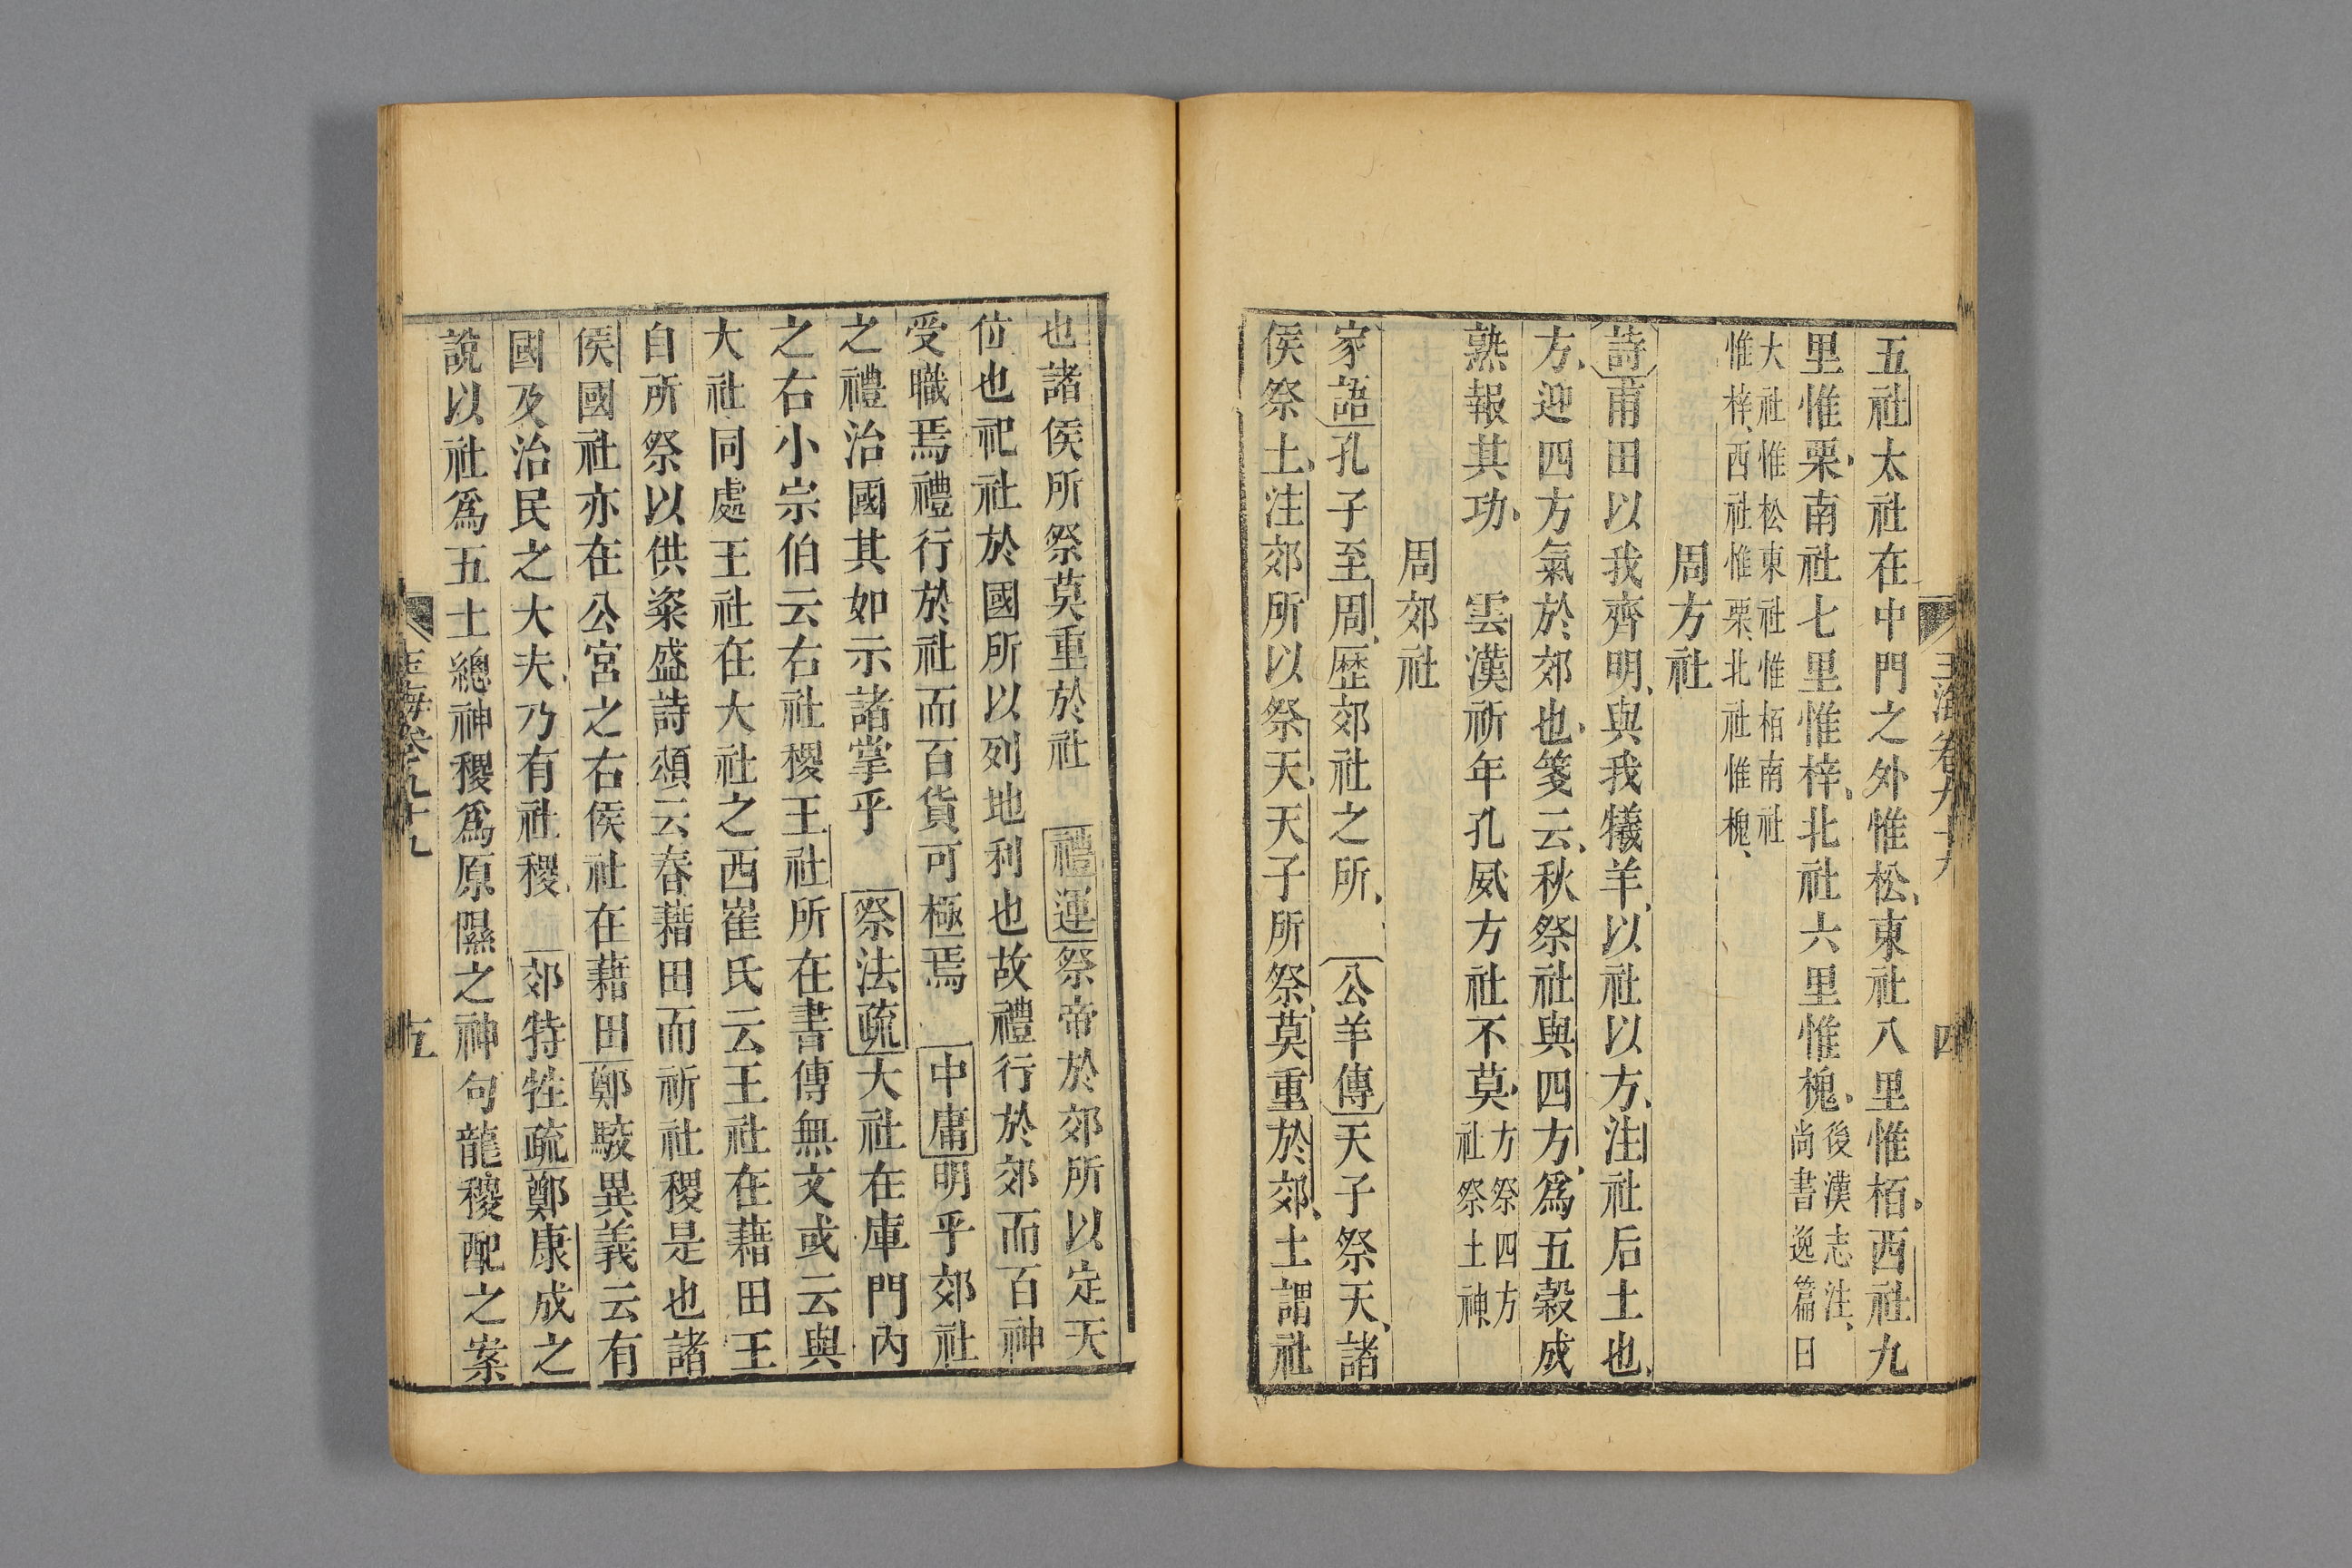 玉海卷九十九 四
五社太社在中門之外惟松東社八里惟栢西社九
里惟栗南社七里惟梓北社六里惟槐後漢志注尚書逸篇曰
大社惟松東社惟栢南社惟梓西社惟栗北社惟槐
周方社
詩甫田以我齊明與我犧羊以社以方注社后土也
方迎四方氣於郊也箋云秋祭社與四方爲五穀成
熟報其功 雲漢祈年孔夙方社不莫方祭四方社祭土神
周郊社
家語孔子至周歴郊社之所 公羊傳天子祭天諸
侯祭土注郊所以祭天天子所祭莫重於郊土謂社
也諸侯所祭莫重於社 禮運祭帝於郊所以定天
位也祀社於國所以列地利也故禮行於郊而百神
受職焉禮行於社而百貨可極焉 中庸明乎郊社
之禮治國其如示諸掌乎 祭法疏大社在庫門內
之右小宗伯云右社稷王社所在書傳無文或云與
大社同處王社在大社之西崔氏云王社在藉田王
自所祭以供粢盛詩頌云春藉田而祈社稷是也諸
侯國社亦在公宮之右侯社在藉田鄭駮異義云有
國及治民之大夫乃有社稷 郊特牲疏鄭康成之
說以社爲五土總神稷爲原隰之神句龍稷配之案
玉海卷九十九 五